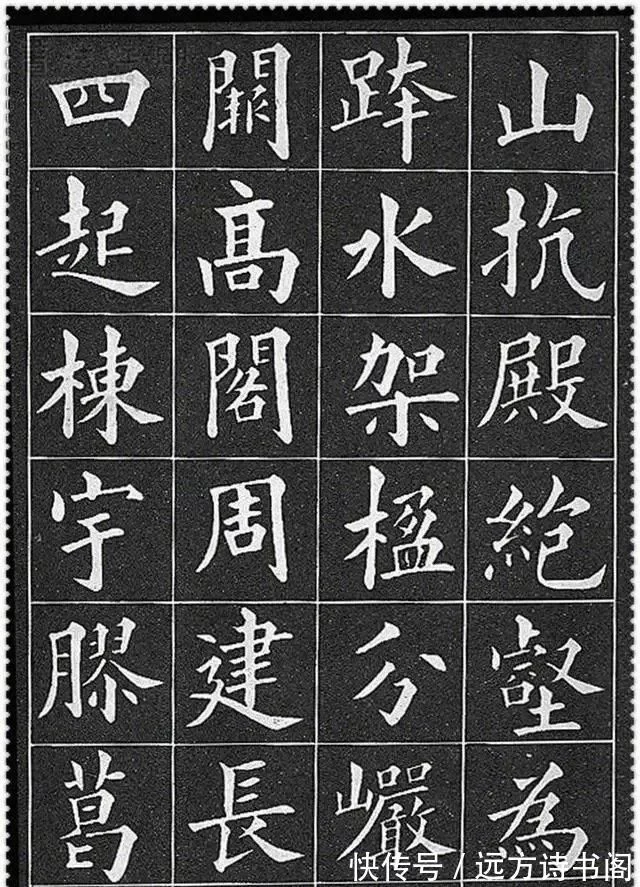 山抗殿絶壑為
跨水架楹分巖
闕高閣周建長
四起棟宇膠葛
快传号 / 远方诗书阁